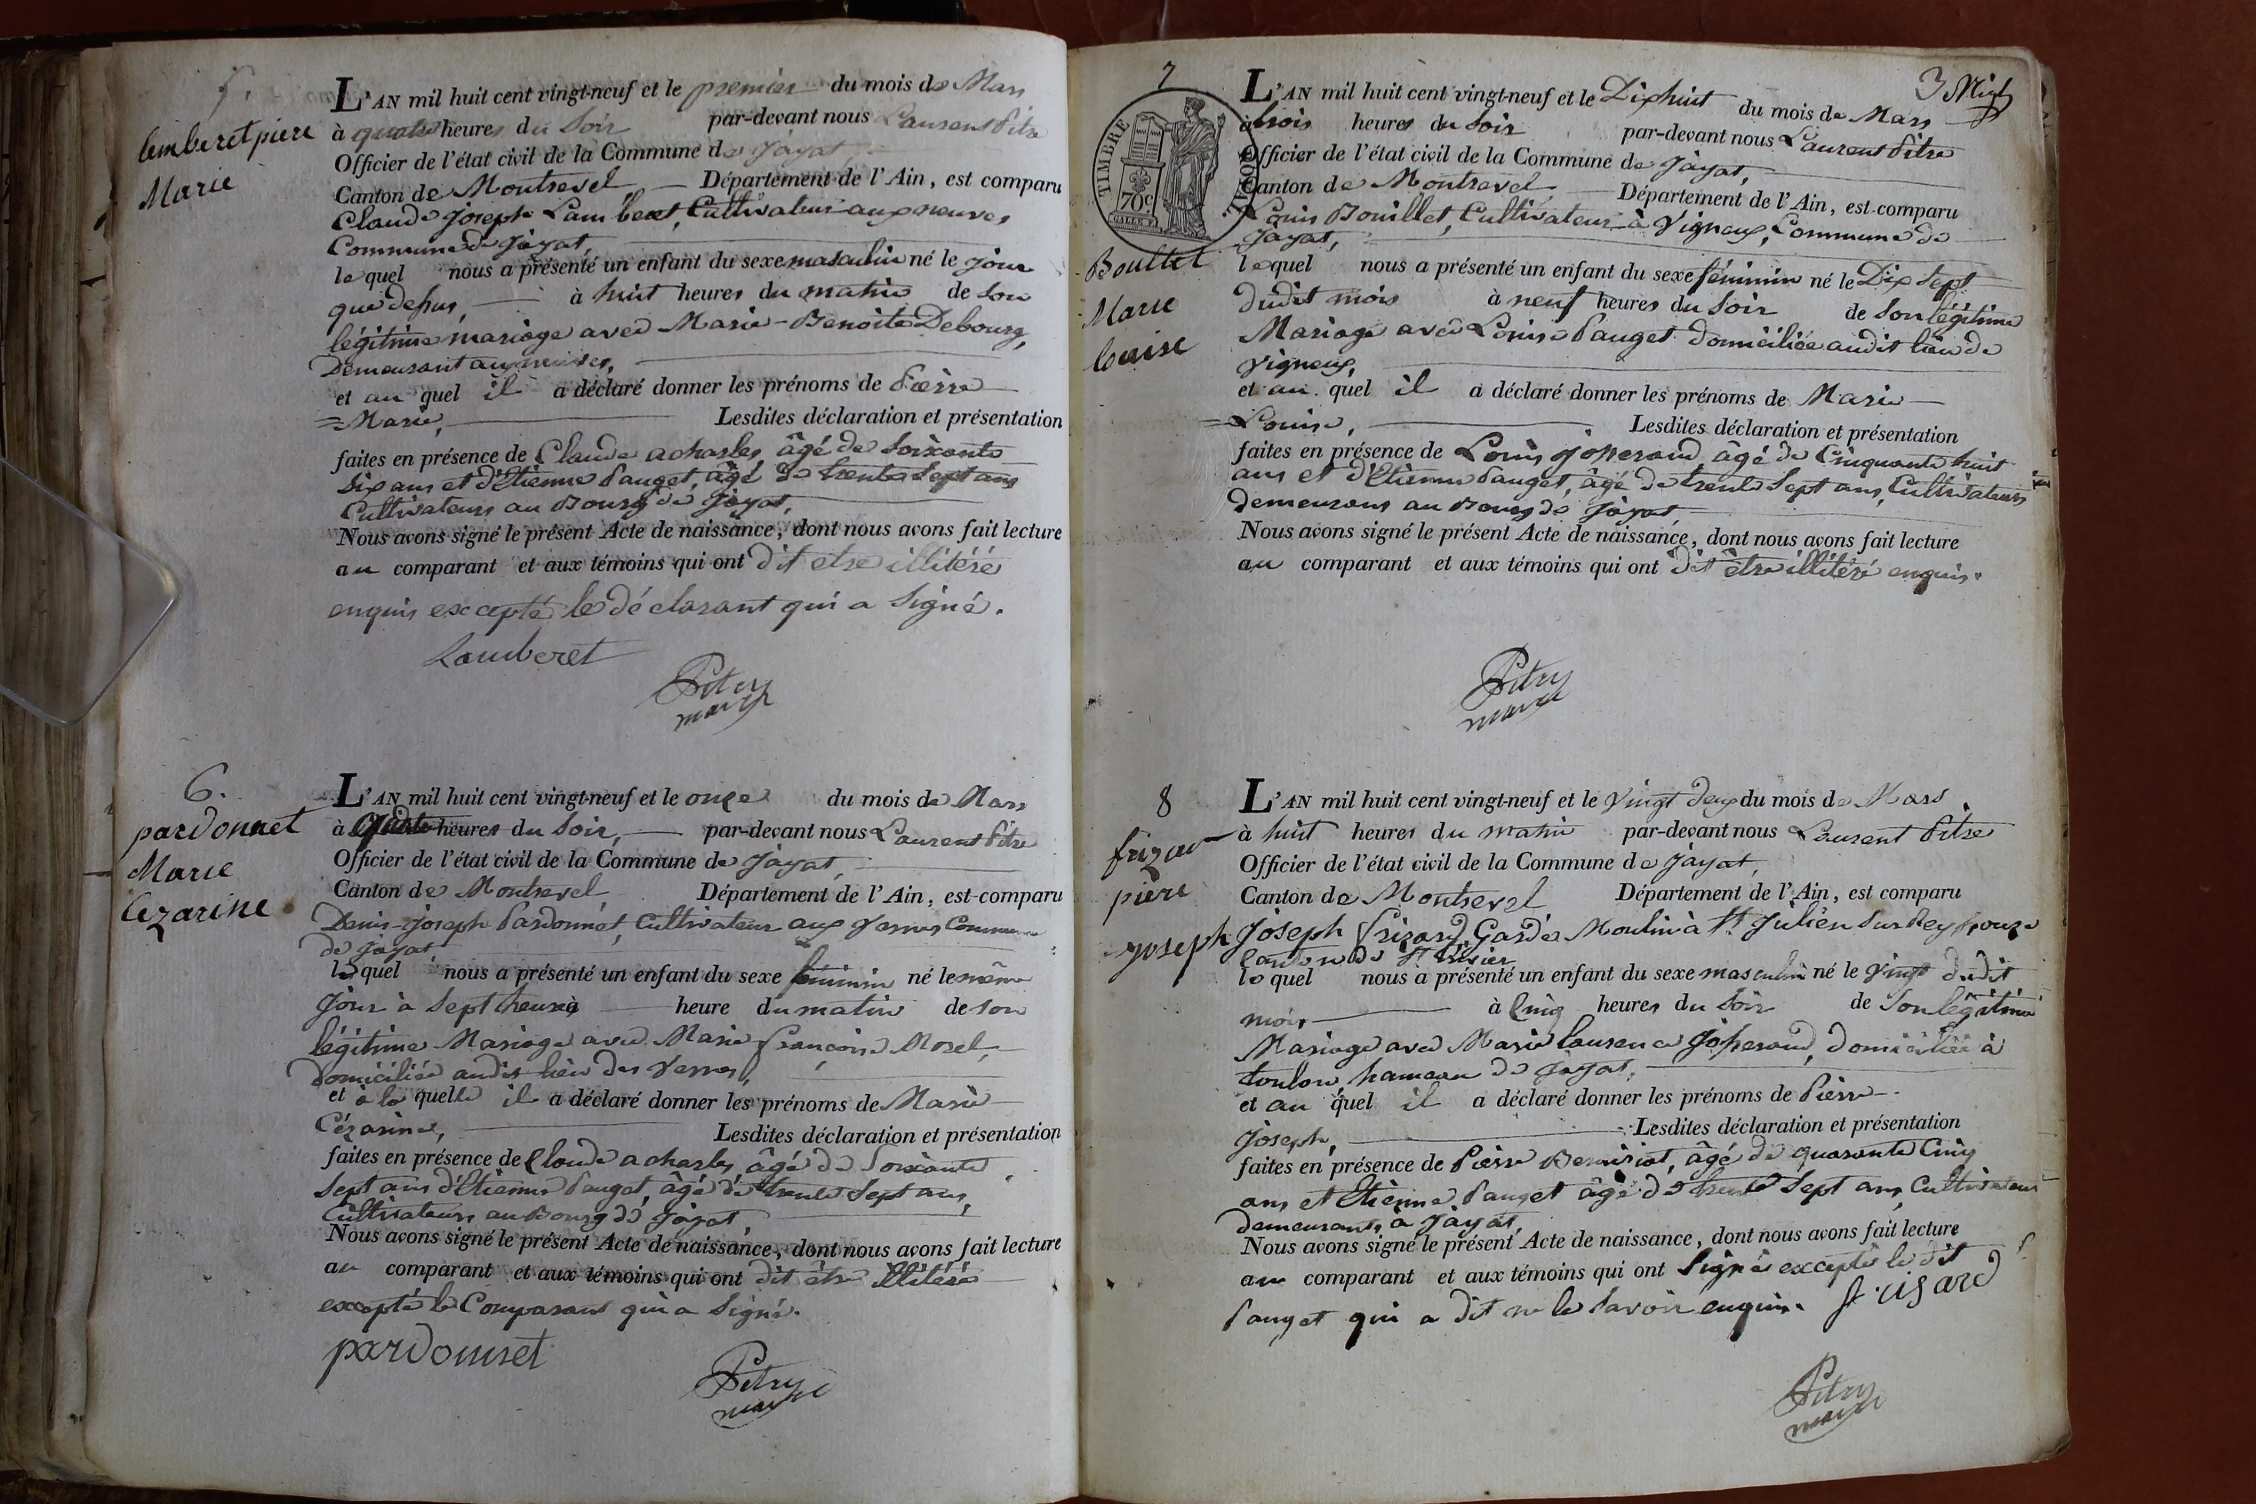 5.
Lamberet piere
Marie
L'AN mil huit cent vingt-neuf et le premier du mois de Mars
à quatre heures du Soir par-devant nous Laurent Pitre
Officier de l'état civil de la Commune de Jayat,
Canton de Montrevel Département de l'Ain, est comparu
Claude Joseph Lamberet, Cultivateur aux neuves
Commune de Jayat,
le quel nous a présenté un enfant du sexe masculin né le jour
que desus, à huit heures du matin de son
légitime mariage avec Marie-Benoite Debourg,
Demeurant aux neuves,
et au quel il a déclaré donner les prénoms de Pierre
=Marie, Lesdites déclaration et présentation
faites en présence de Claude acharles, âgé de soixante
six ans et d'Etienne Pauget, âgé de trente sept ans
Cultivateurs au Bourg de Jayat,
Nous avons signé le présent Acte de naissance, dont nous avons fait lecture
au comparant et aux témoins qui ont dit etre illitéré
enquis excepté le déclarant qui a Signé.
Lamberet
Pitre
maire
6.
pardonnet
Marie
Cezarine
L'AN mil huit cent vingt-neuf et le onze du mois de Mars
à quatre heures du Soir, par-devant nous Laurent Pitre
Officier de l'état civil de la Commune de Jayat,
Canton de Montrevel Département de l'Ain, est comparu
Denis-Joseph Pardonnet, Cultivateur aux Vernes Commune
de Jayat
le quel nous a présenté un enfant du sexe féminin né le même
Jour à Sept heures heure du matin de son
légitime Mariage avec Marie françoise Morel,
Domiciliée audit lieu des Vernes,
et à la quelle il a déclaré donner les prénoms de Marie
Cézarine, Lesdites déclaration et présentation
faites en présence de Claude acharles, âgé de Soixante
Sept ans d'Etienne Pauget, âgé de trente Sept ans,
Cultivateurs au Bourg de Jayat,
Nous avons signé le présent Acte de naissance, dont nous avons fait lecture
au comparant et aux témoins qui ont dit être illitéré
excepté le Comparant qui a Signé.
pardonnet
Pitre
maire
3 Mif
7
TIMBRE ROYAL
70c
Boullet
Marie
louise
L'AN mil huit cent vingt-neuf et le Dix huit du mois de Mars
à trois heures du Soir par-devant nous Laurent Pitre
Officier de l'état civil de la Commune de Jayat,
Canton de Montrevel Département de l'Ain, est comparu
Louis Bouillet, Cultivateur à Vigneux, Commune de
Jayat,
le quel nous a présenté un enfant du sexe féminin né le Dix Sept
dudit mois à neuf heures du Soir de Son légitime
Mariage avec Louise Pauget domiciliée audit lieu de
Vigneux,
et au quel il a déclaré donner les prénoms de Marie
=Louise, Lesdites déclaration et présentation
faites en présence de Louis Joperand âgé de Cinquante huit
ans et d'Etienne Pauget, âgé de trente Sept ans, Cultivateurs
demeurans au Bourg de Jayat,
Nous avons signé le présent Acte de naissance, dont nous avons fait lecture
au comparant et aux témoins qui ont dit être illitéré enquis.
Pitre
maire
8
frizard
pierre
joseph
L'AN mil huit cent vingt-neuf et le Vingt deux du mois de Mars
à huit heures du matin par-devant nous Laurent Pitre
Officier de l'état civil de la Commune de Jayat,
Canton de Montrevel Département de l'Ain, est comparu
Joseph frizard, Garde Moulin à St. Julien Sur Reyssouze
Canton de St Trivier
le quel nous a présenté un enfant du sexe masculin né le Vingt dudit
mois à Cinq heures du Soir de Son légitime
Mariage avec Marie laurence Joperand, domiciliée à
toulon, hameau de Jayat,
et au quel il a déclaré donner les prénoms de Pierre-
Joseph, Lesdites déclaration et présentation
faites en présence de Pierre, âgé de quarante Cinq
ans et Etienne Pauget âgé de trente Sept ans, Cultivateurs
demeurants à Jayat,
Nous avons signé le présent Acte de naissance, dont nous avons fait lecture
au comparant et aux témoins qui ont Signé excepté le dit
Pauget qui a dit ne le Savoir enquis. frisard
Pitre
maire